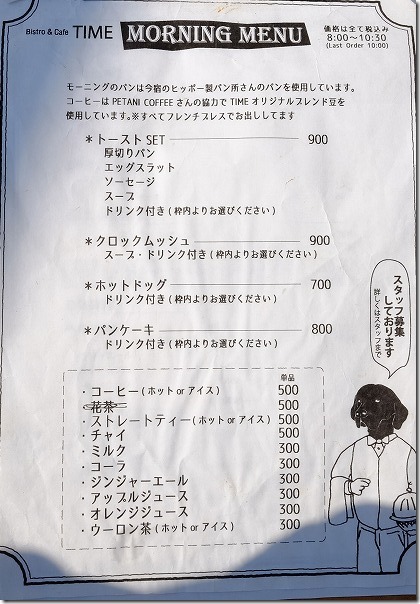 Bistro & Cafe TIME MORNING MENU
価格は全て税込み
8:00〜10:30
(Last Order 10:00)
モーニングのパンは今宿のヒッポー製パン所さんのパンを使用しています。
コーヒーは PETANI COFFEE さんの協力で TIME オリジナルブレンド豆を
使用しています。※すべてフレンチプレスでお出ししてます
＊トースト SET 900
厚切りパン
エッグスラット
ソーセージ
スープ
ドリンク付き ( 枠内よりお選びください )
＊クロックムッシュ 900
スープ・ドリンク付き ( 枠内よりお選びください )
＊ホットドッグ 700
ドリンク付き ( 枠内よりお選びください )
＊パンケーキ 800
ドリンク付き ( 枠内よりお選びください )
スタッフ募集
しております
詳しくはスタッフまで
単品
・コーヒー ( ホット or アイス ) 500
・花茶 500
・ストレートティー ( ホット or アイス ) 500
・チャイ 500
・ミルク 300
・コーラ 300
・ジンジャーエール 300
・アップルジュース 300
・オレンジジュース 300
・ウーロン茶 ( ホット or アイス ) 300